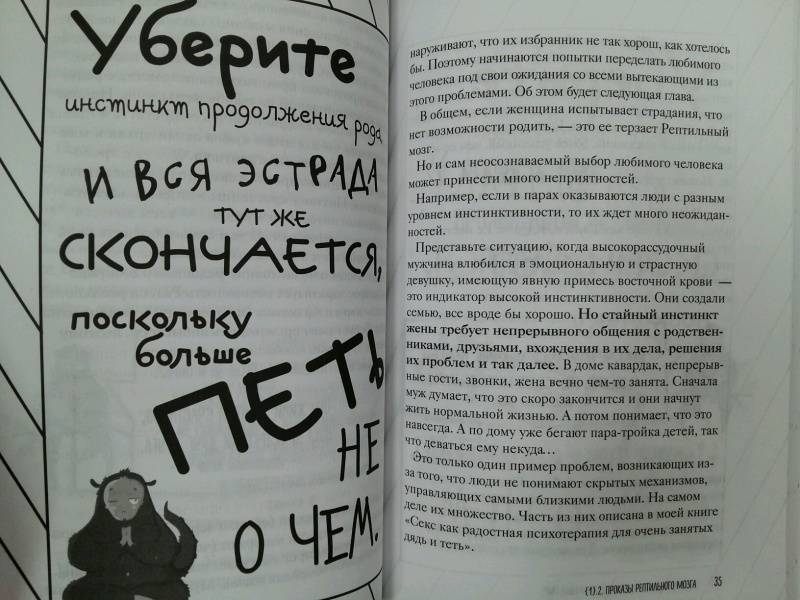 Уберите
инстинкт продолжения рода,
и вся эстрада
тут же
скончается,
поскольку
больше
петь
не
о чем.
наруживают, что их избранник не так хорош, как хотелось
бы. Поэтому начинаются попытки переделать любимого
человека под свои ожидания со всеми вытекающими из
этого проблемами. Об этом будет следующая глава.
В общем, если женщина испытывает страдания, что
нет возможности родить, — это ее терзает Рептильный
мозг.
Но и сам неосознаваемый выбор любимого человека
может принести много неприятностей.
Например, если в парах оказываются люди с разным
уровнем инстинктивности, то их ждет много неожидан-
ностей.
Представьте ситуацию, когда высокорассудочный
мужчина влюбился в эмоциональную и страстную
девушку, имеющую явную примесь восточной крови —
это индикатор высокой инстинктивности. Они создали
семью, все вроде бы хорошо. Но стайный инстинкт
жены требует непрерывного общения с родствен-
никами, друзьями, вхождения в их дела, решения
их проблем и так далее. В доме кавардак, непрерыв-
ные гости, звонки, жена вечно чем-то занята. Сначала
муж думает, что это скоро закончится и они начнут
жить нормальной жизнью. А потом понимает, что это
навсегда. А по дому уже бегают пара-тройка детей, так
что деваться ему некуда…
Это только один пример проблем, возникающих из-
за того, что люди не понимают скрытых механизмов,
управляющих самыми близкими людьми. На самом
деле их множество. Часть из них описана в моей книге
«Секс как радостная психотерапия для очень занятых
дядь и теть».
{1}.2. ПРОКАЗЫ РЕПТИЛЬНОГО МОЗГА 35